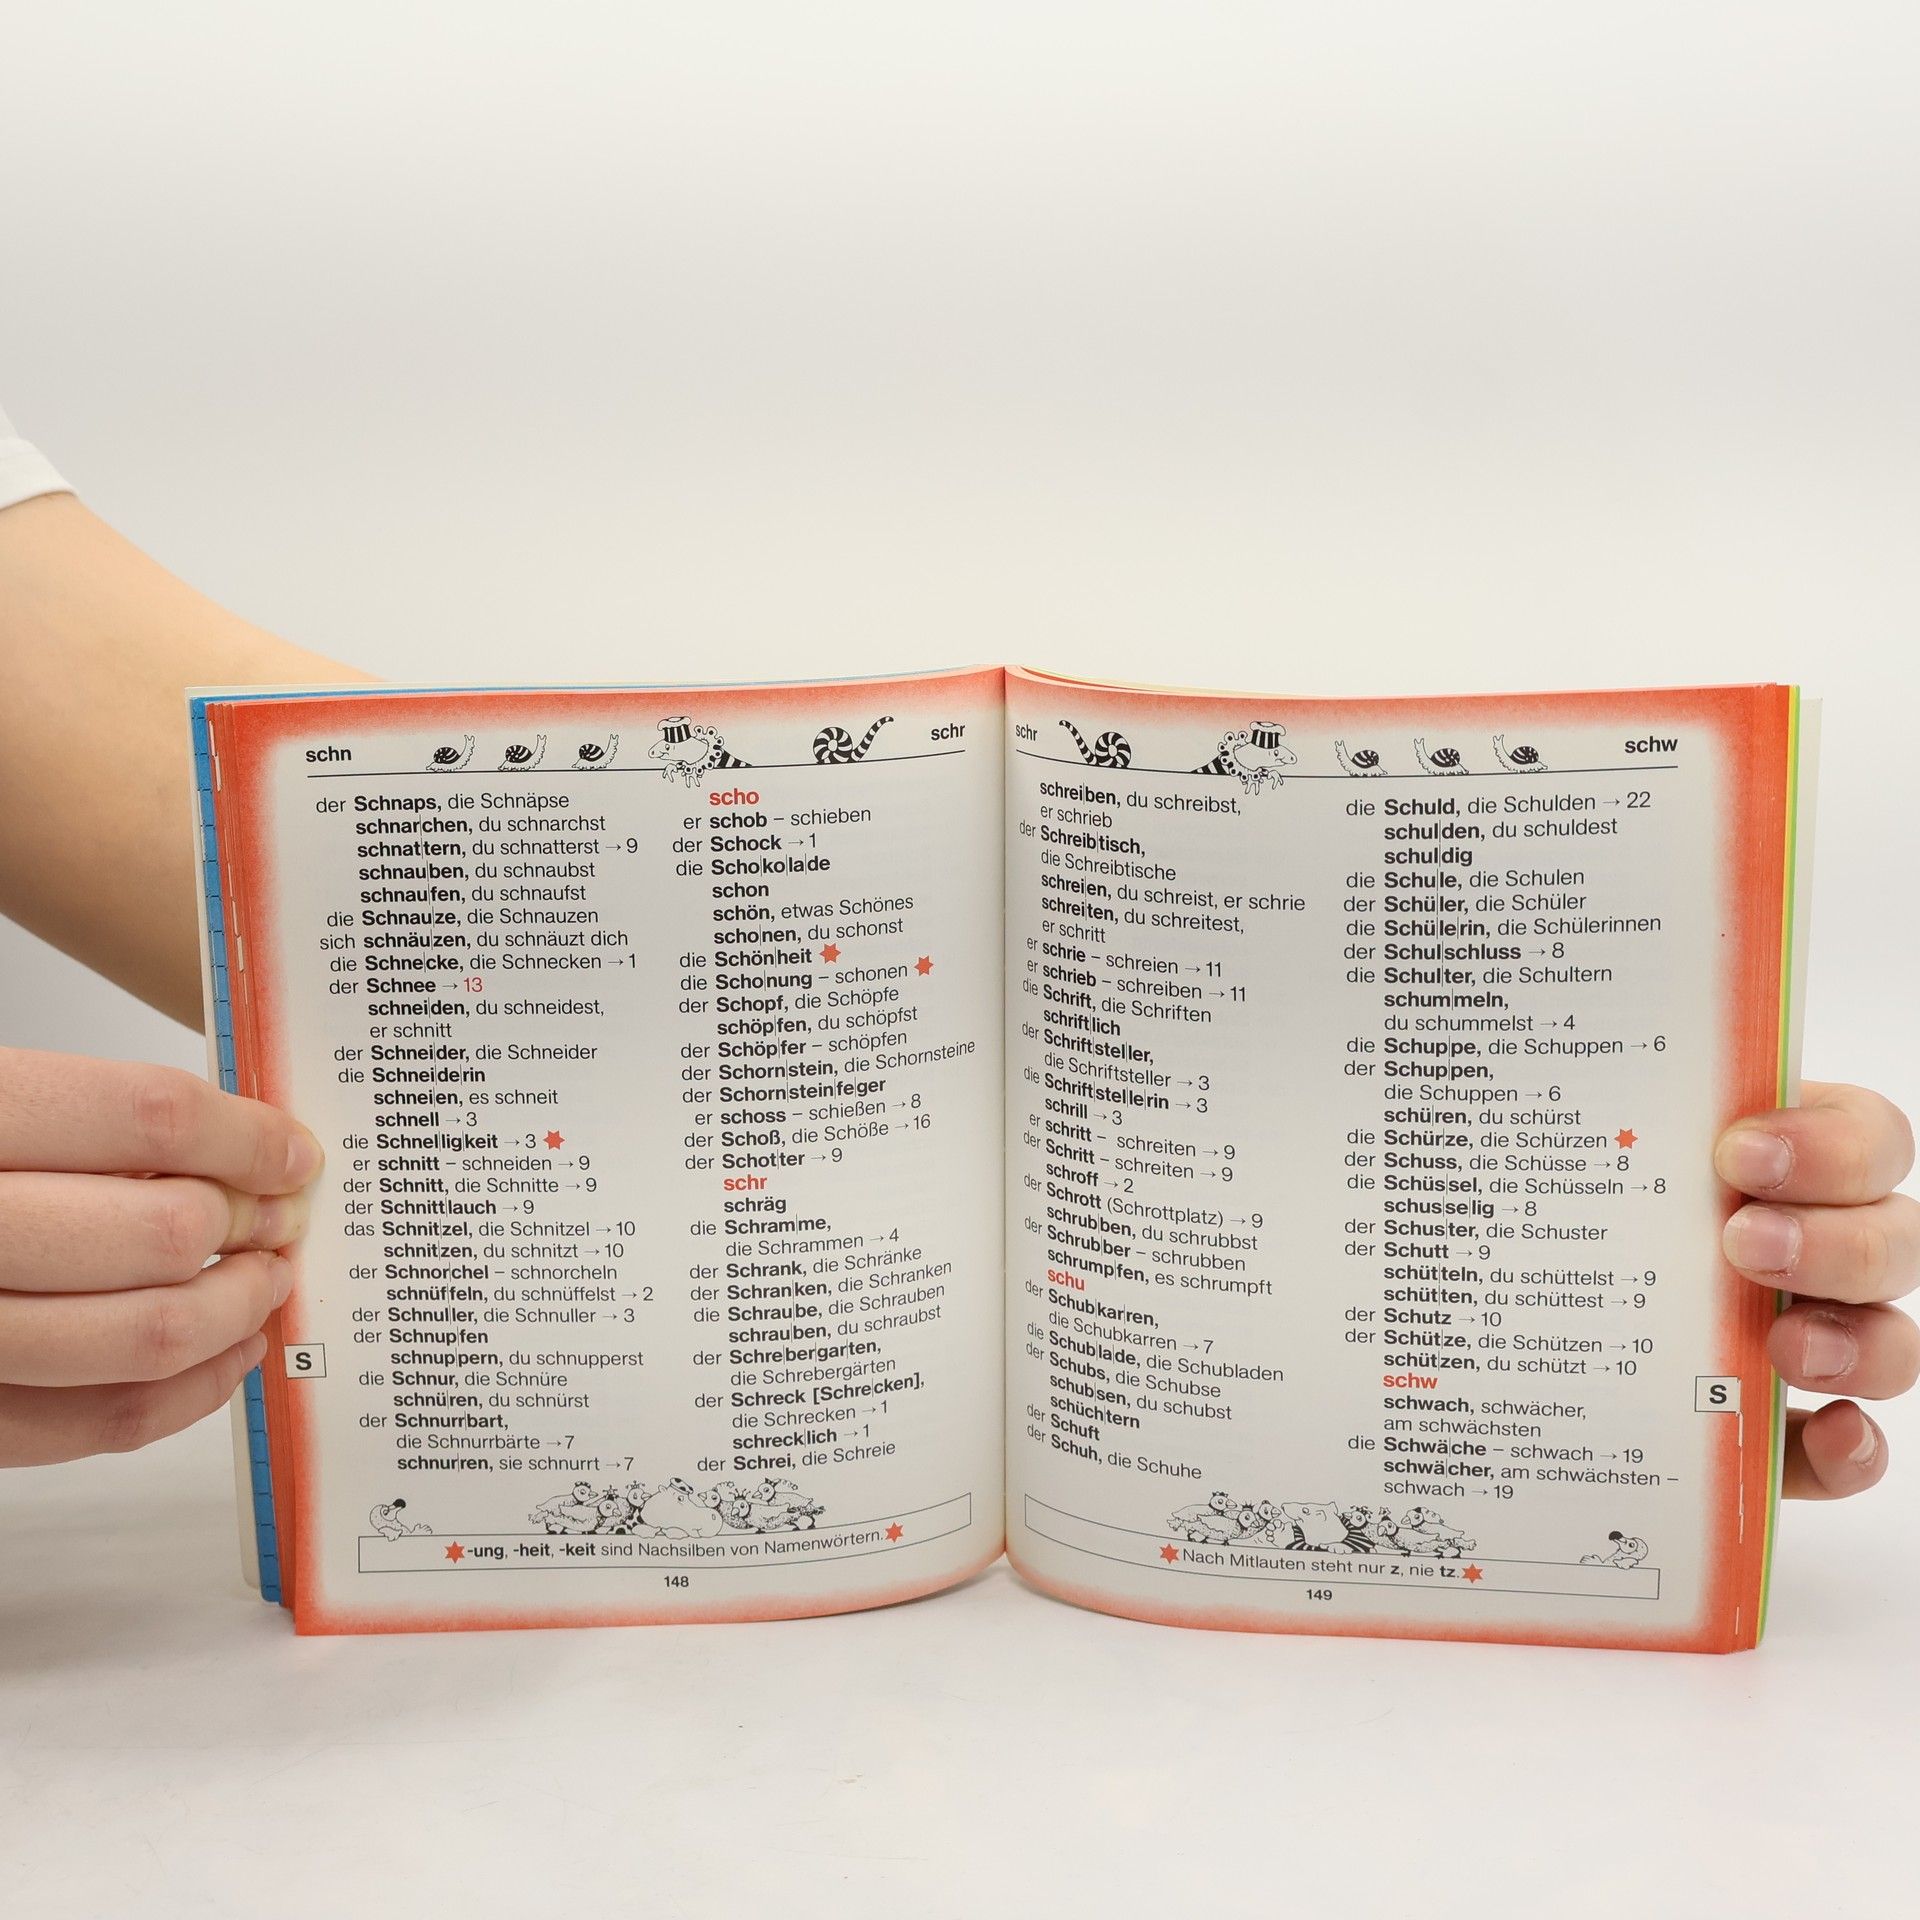 schn
schr
der Schnaps, die Schnäpse
schnarchen, du schnarchst
schnattern, du schnatterst → 9
schnauben, du schnaubst
schnaufen, du schnaufst
die Schnauze, die Schnauzen
sich schnäuzen, du schnäuzt dich
die Schnecke, die Schnecken → 1
der Schnee → 13
schneiden, du schneidest,
er schnitt
der Schneider, die Schneider
die Schneiderin
schneien, es schneit
schnell → 3
die Schnelligkeit → 3
er schnitt – schneiden → 9
der Schnitt, die Schnitte → 9
der Schnittlauch → 9
das Schnitzel, die Schnitzel → 10
schnitzen, du schnitzt → 10
der Schnorchel – schnorcheln
schnüffeln, du schnüffelst → 2
der Schnuller, die Schnuller → 3
der Schnupfen
schnuppern, du schnupperst
die Schnur, die Schnüre
schnüren, du schnürst
der Schnurrbart,
die Schnurrbärte → 7
schnurren, sie schnurrt → 7
scho
er schob – schieben
der Schock → 1
die Schokolade
schon
schön, etwas Schönes
schonen, du schonst
die Schönheit
die Schonung – schonen
der Schopf, die Schöpfe
schöpfen, du schöpfst
der Schöpfer – schöpfen
der Schornstein, die Schornsteine
der Schornsteinfeger
er schoss – schießen → 8
der Schoß, die Schöße → 16
der Schotter → 9
schr
schräg
die Schramme,
die Schrammen → 4
der Schrank, die Schränke
der Schranken, die Schranken
die Schraube, die Schrauben
schrauben, du schraubst
der Schrebergarten,
die Schrebergärten
der Schreck [Schrecken],
die Schrecken → 1
schrecklich → 1
der Schrei, die Schreie
S
-ung, -heit, -keit sind Nachsilben von Namenwörtern.
148
schr
schw
schreiben, du schreibst,
er schrieb
der Schreibtisch,
die Schreibtische
schreien, du schreist, er schrie
schreiten, du schreitest,
er schritt
er schrie – schreien → 11
er schrieb – schreiben → 11
die Schrift, die Schriften
schriftlich
der Schriftsteller,
die Schriftsteller → 3
die Schriftstellerin → 3
schrill → 3
er schritt – schreiten → 9
der Schritt – schreiten → 9
schroff → 2
der Schrott (Schrottplatz) → 9
schrubben, du schrubbst
der Schrubber – schrubben
schrumpfen, es schrumpft
schu
der Schubkarren,
die Schubkarren → 7
die Schublade, die Schubladen
der Schubs, die Schubse
schubsen, du schubst
schüchtern
der Schuft
der Schuh, die Schuhe
die Schuld, die Schulden → 22
schulden, du schuldest
schuldig
die Schule, die Schulen
der Schüler, die Schüler
die Schülerin, die Schülerinnen
der Schulschluss → 8
die Schulter, die Schultern
schummeln,
du schummelst → 4
die Schuppe, die Schuppen → 6
der Schuppen,
die Schuppen → 6
schüren, du schürst
die Schürze, die Schürzen
der Schuss, die Schüsse → 8
die Schüssel, die Schüsseln → 8
schusselig → 8
der Schuster, die Schuster
der Schutt → 9
schütteln, du schüttelst → 9
schütten, du schüttest → 9
der Schutz → 10
der Schütze, die Schützen → 10
schützen, du schützt → 10
schw
schwach, schwächer,
am schwächsten
die Schwäche – schwach → 19
schwächer, am schwächsten –
schwach → 19
S
Nach Mitlauten steht nur z, nie tz.
149